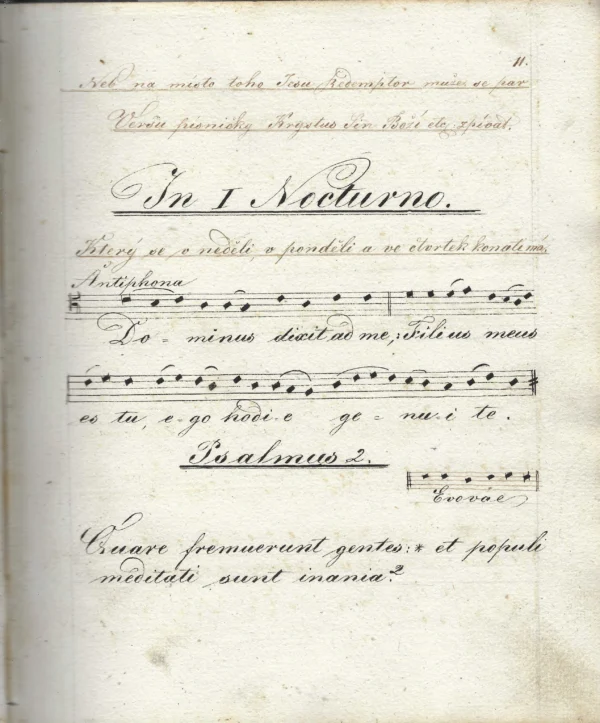 11.
Neb na místo toho Jesu Redemptor může se pár
Veršů písničky Krystus Sin Boží etc. zpívat.
In I Nocturno.
Který se v neděli, v pondělí a ve čtvrtek konati má.
Antiphona
Do - minus dixit ad me,: Filius meus
es tu, e-go hodi-e ge - nu-i te.
Psalmus 2.
Evovae
Quare fremuerunt gentes: * et populi
meditati sunt inania?